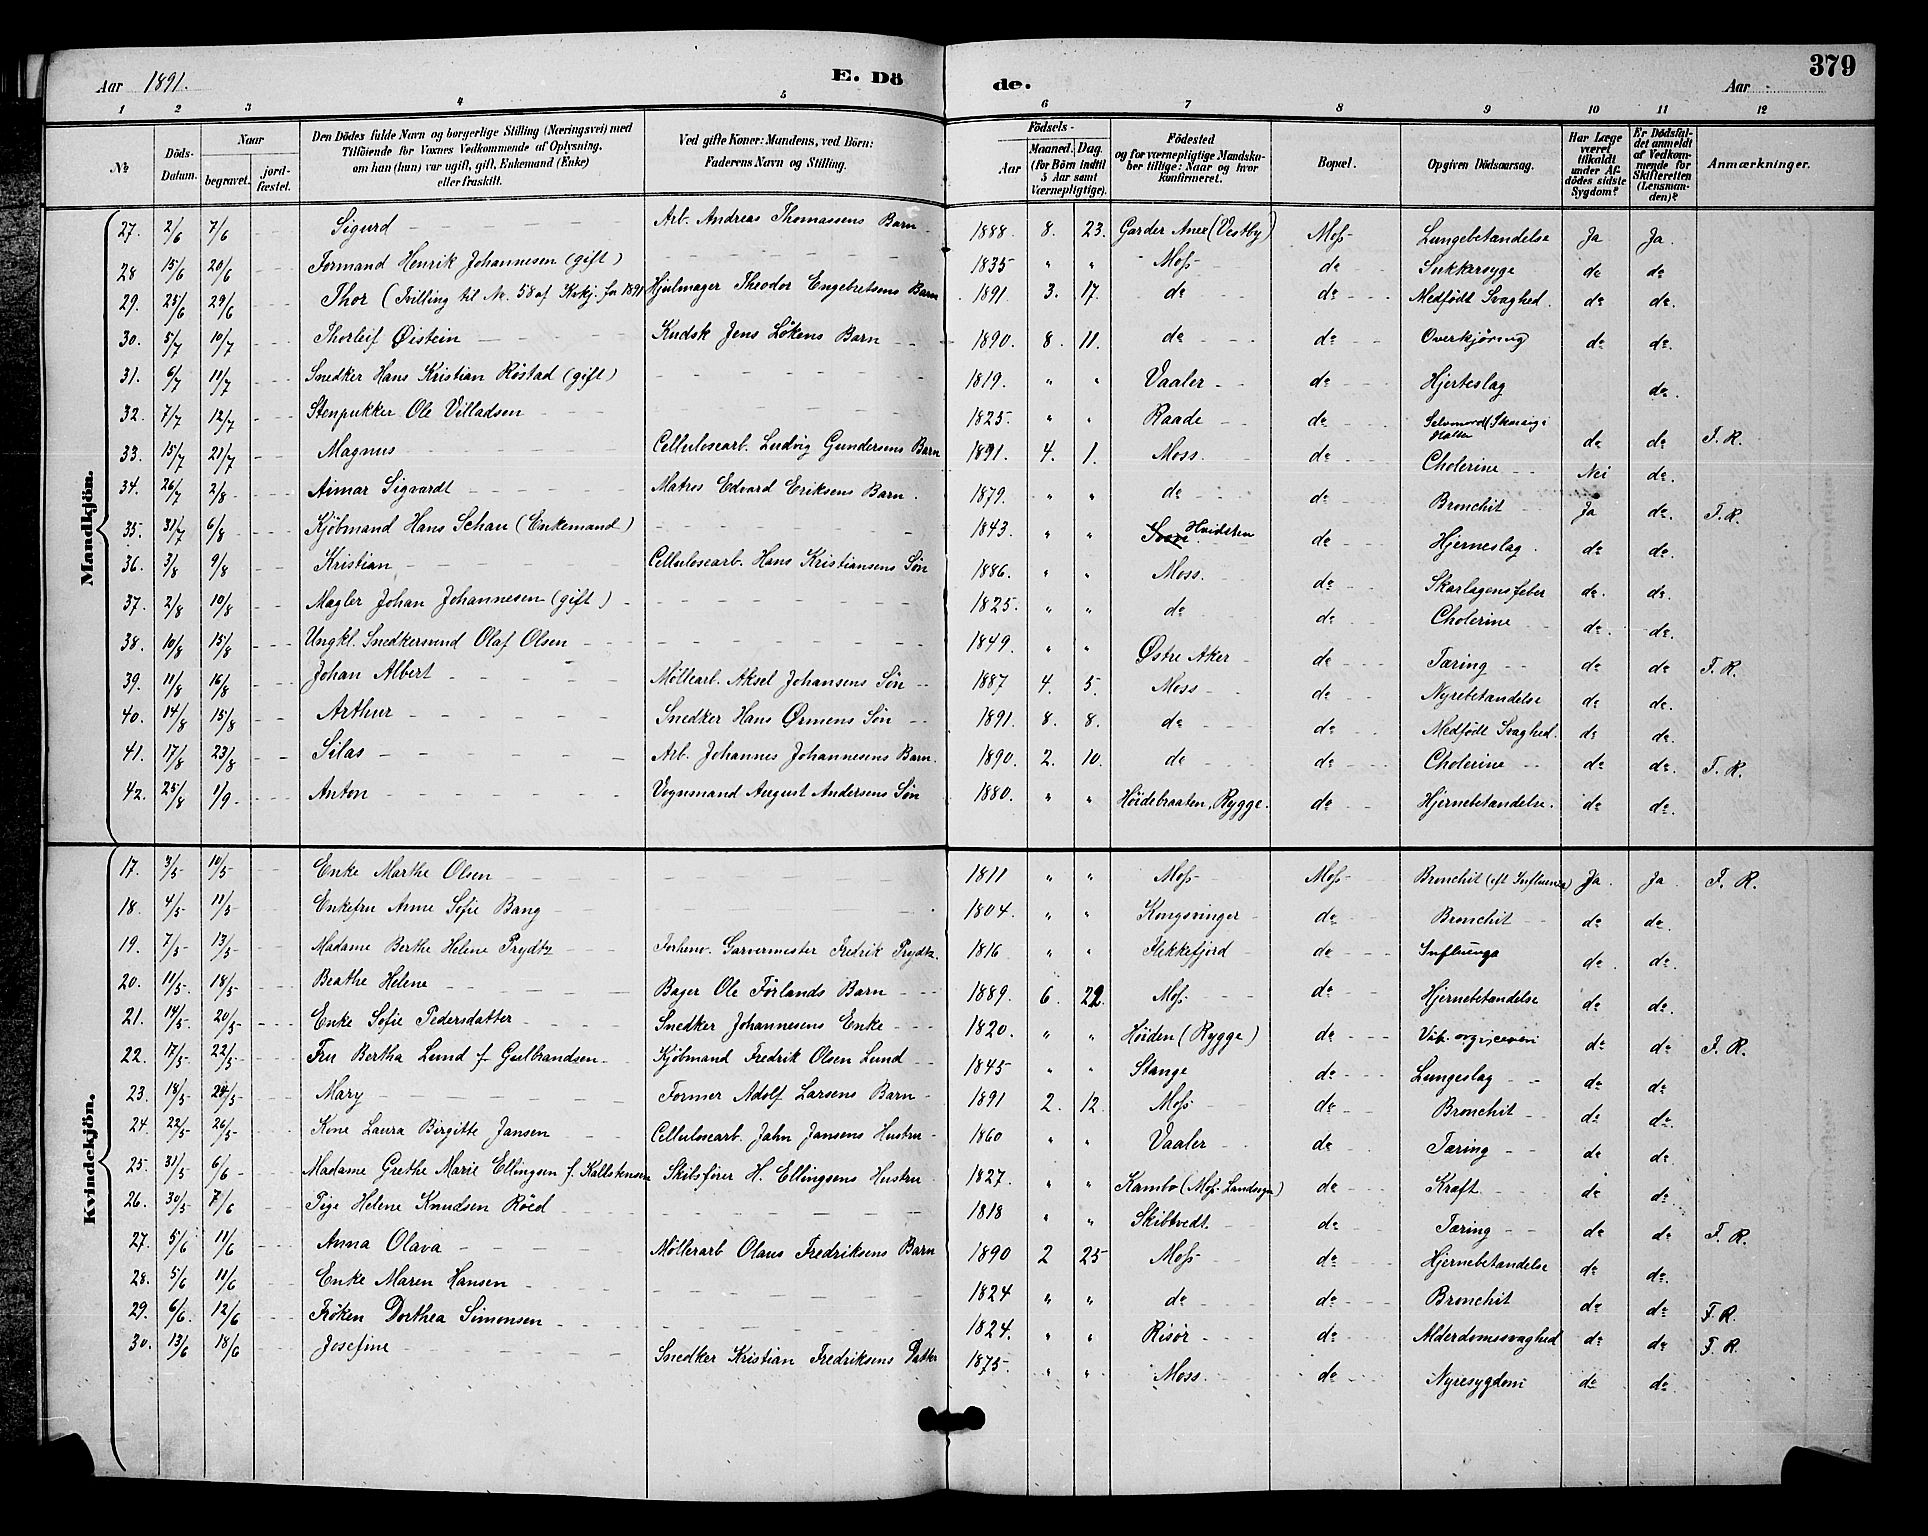 Aar 1891. E. Dö de. Aar 379
1 2 3 4 5 6 7 8 9 10 11 12
№ Döds-Datum. Naar begravet. jord-fæstet. Den Dödes fulde Navn og borgerlige Stilling (Næringsvei) med Tilföiende för Voxnes Vedkommende af Oplysning, om han (hun) var ugift, gift, Enkemand (Enke) eller fraskilt. Ved gifte Koner: Mandens, ved Börn: Faderens Navn og Stilling. Födsels- Aar Maaned. Dag. (for Börn indtil 5 Aar samt Værnepligtige). Födested og for værnepligtige Mandska-ber tillige: Naar og hvor konfirmeret. Bopæl. Opgiven Dödsaarsag. Har Læge været tilkaldt under Af-dödes sidste Sygdom? Er Dödsfal-det anmeldt af Vedkom-mende for Skifteretten (Lensman-den)? Anmærkninger.
Mandkjön.
27. 2/6 7/6 Sigurd Arb. Andreas Thomassens Barn 1888 8. 23. Garder Anex (Vestby) Moss Lungebetændelse Ja Ja.
28 15/6 20/6 Formand Henrik Johannesen (gift) 1835 " " Moss do Sukkersyge do do
29. 25/6 29/6 Thor (Tvilling til Nr. 58 af Kvkj. for 1891 Hjulmager Theodor Engebretsens Barn 1891 3. 17. do do Medfødt Svaghed. do do.
30. 5/7 10/7 Thorleif Øistein Kudsk Jens Løkens Barn 1890. 8. 11. do do Overkjøring do do.
31. 6/7 11/7 Snedker Hans Kristian Røstad (gift) 1819. " " Vaaler do Hjerteslag do.
32. 7/7 12/7 Stenpukker Ole Villadsen 1825. " " Raade do Selvmord (Skaaring i Halsen do do T. R.
33. 15/7 21/7 Magnus Cellulosearb. Ludvig Gundersens Barn 1891. 4. 1. Moss. do Cholerine Nei do.
34. 26/7 2/8 Aimar Sigvardt Matros Edvard Eriksens Barn. 1879. " " do do Bronchit Ja do. T. R.
35. 31/7 6/8 Kjøbmand Hans Schau (Enkemand) 1843. " " Hvidsten do Hjerneslag. do do.
36. 3/8 9/8 Kristian Cellulosearb. Hans Kristiansens Søn 1886. " " Moss. do Skarlagensfeber do. do.
37. 2/8 10/8 Mægler Johan Johannesen (gift) 1825. " " do do Cholerine do. do.
38. 10/8 15/8 Ungkl. Snedkersvend Olaf Olsen 1849. " " Østre Aker do Tæring do do T. R.
39. 11/8 16/8 Johan Albert Møllearb. Aksel Johansens Søn 1887 4. 5. Moss do Nyrebetændelse do do.
40. 14/8 15/8 Arthur Snedker Hans Ørmens Søn 1891. 8. 8. do do Medfødt Svaghed. do do.
41. 17/8 23/8 Silas Arb. Johannes Johannesens Barn. 1890. 2. 10. do do Cholerine do do. T. R.
42. 25/8 1/9 Anton Vognmand August Andersens Søn 1880. " " Høidebraaten, Rygge. do Hjernebetændelse. do do.
Kvindekjön.
17. 3/5 10/5 Enke Marthe Olsen 1811 " " Moss Moss Bronchit (eft Influenza) Ja. Ja. T. R.
18. 4/5 11/5 Enkefru Anne Sofie Bang 1804. " " Kongsvinger do Bronchit do do.
19. 7/5 13/5 Madame Berthe Helene Prydtz Forhenv. Garvermester Fredrik Prydtz. 1816 " " Flekkefjord do Influenza do. do.
20. 11/5 18/5 Beathe Helene Bager Ole Førlands Barn 1889. 6. 22. Moss. do Hjernebetændelse do do.
21. 14/5 20/5 Enke Sofie Pedersdatter Snedker Johannesens Enke 1820. " " Høiden (Rygge) do Vit. do do. T. R.
22. 17/5 22/5 Fru Bertha Lund f. Gulbrandsen Kjøbmand Fredrik Olsen Lund 1845 " " Stange do Lungeslag do do
23. 18/5 24/5 Mary Former Adolf Larsens Barn 1891 2. 12. Moss do Bronchit do do.
24. 22/5 26/5 Kone Laura Birgitte Jansen Cellulosearb. Jahn Jansens Hustru 1860 " " Vaaler do Tæring do do.
25. 31/5 6/6 Madame Grethe Marie Ellingsen f. Kallstensen Skibsfører H. Ellingsens Hustru 1827. " " Kambo (Moss Landsogn) do Kræft do do.
26. 30/5 7/6 Pige Helene Knudsen Røed 1818 " " Skibtvedt. do Tæring do do. T. R.
27. 5/6 11/6 Anna Olava Møllerarb Olaus Fredriksens Barn 1890 2 25 Moss do Hjernebetændelse do do.
28. 5/6 11/6 Enke Maren Hansen 1824 " " do do Bronchit do do. T. R.
29. 6/6. 12/6 Frøken Dorthea Simonsen 1824. " " Risør do Alderdomssvaghed do do. T. R.
30. 13/6 18/6 Josefine Snedker Kristian Fredriksens Datter 1875 " " Moss. do Nyresygdom do do.